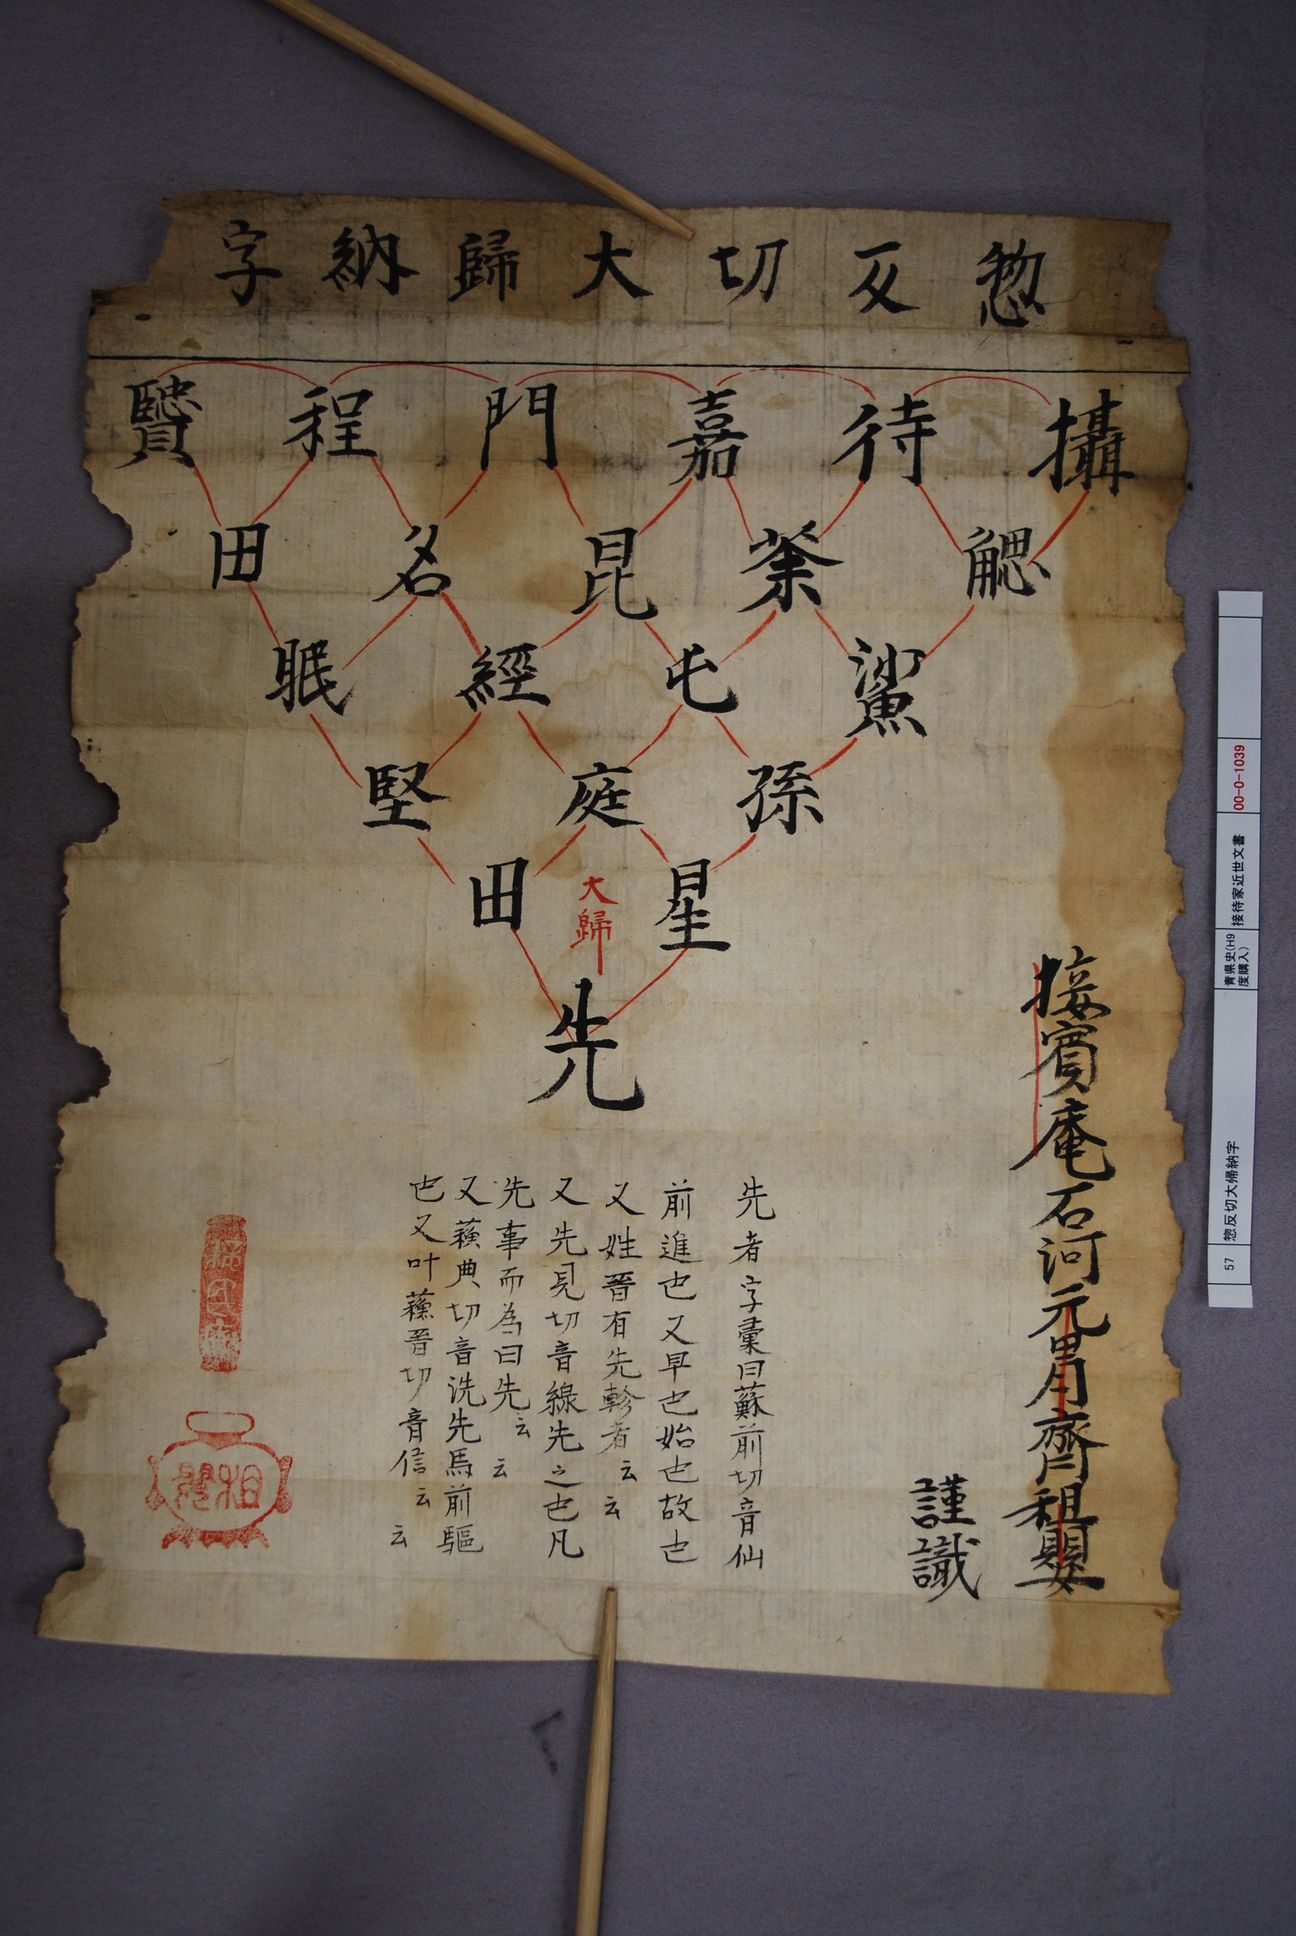 惣反切大歸納字
攝待嘉門程賢
鰓荼昆名田
鯊乇經眠
孫庭堅
星田
大歸
先
接賓庵石河元胃齊祖嬰
謹識
先者字彙曰蘇前切音仙
前進也又早也始也故也
又姓晋有先軫者云云
又先見切音線先之也凡
先事而為曰先云云
又蘓典切音洗先馬前驅
也又叶蘓晋切音信云云
57
惣反切大帰納字
青県史(H9
度購入)
接待家近世文書
00-0-1039